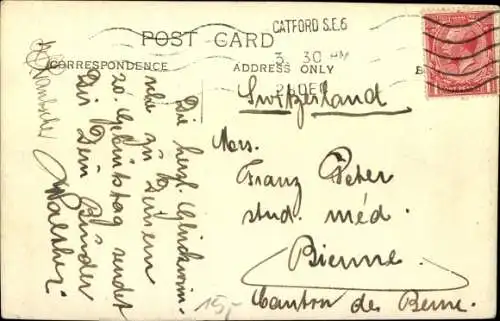 CATFORD S.E.6
3. 30 PM
2 DEC
POST CARD
CORRESPONDENCE
ADDRESS ONLY
Switzerland
Franz Peter
stud. méd.
Bienne.
Canton de Berne.
Die herzl. Glückwün-
sche zu Deinem
20. Geburtstag sendet
Dir Dein Bruder
Walther.
15,-